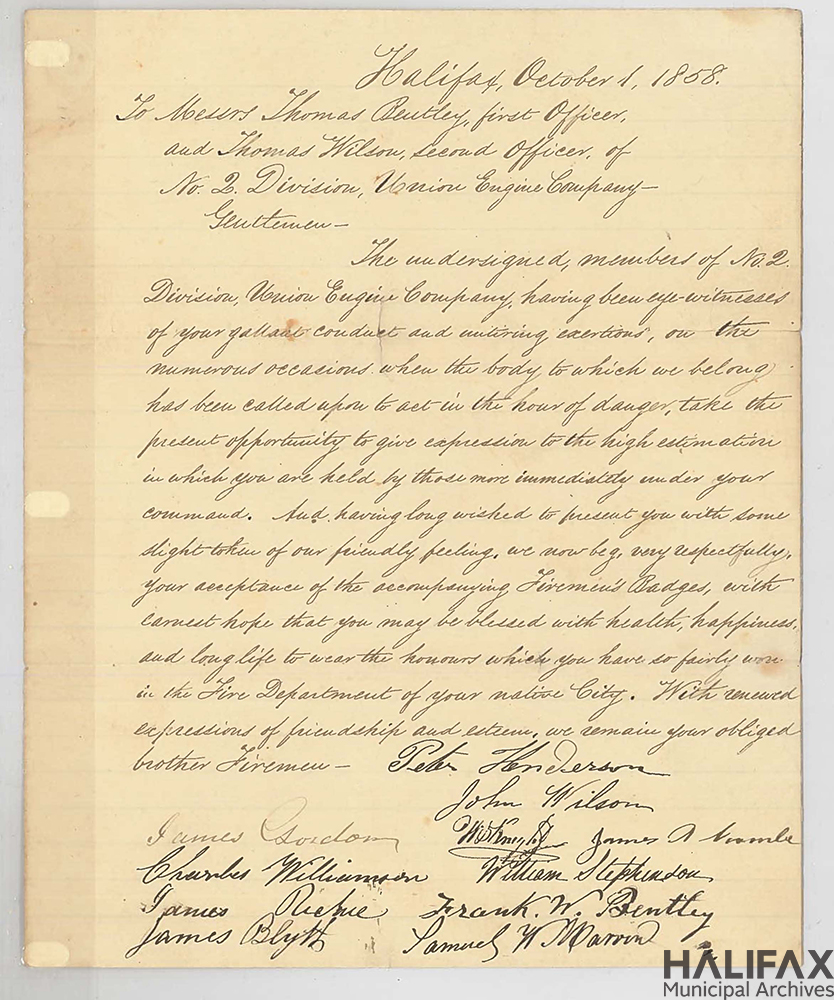 Halifax, October 1, 1858.
To Messrs Thomas Bentley, first Officer,
and Thomas Wilson, second Officer, of
No. 2. Division, Union Engine Company—
Gentlemen—
The undersigned, members of No. 2.
Division, Union Engine Company, having been eye-witnesses
of your gallant conduct and untiring exertions, on the
numerous occasions when the body to which we belong
has been called upon to act in the hour of danger, take the
present opportunity to give expression to the high estimation
in which you are held by those more immediately under your
command. And having long wished to present you with some
slight token of our friendly feeling, we now beg, very respectfully,
your acceptance of the accompanying Firemen's Badges, with
earnest hope that you may be blessed with health, happiness,
and long life to wear the honours which you have so fairly won
in the Fire Department of your native City. With renewed
expressions of friendship and esteem, we remain your obliged
brother Firemen— Peter Henderson
John Wilson
James Gordon James
Charles Williamson William Stephenson
James Richie Frank. W. Bentley
James Blyth Samuel W Marvin
HALIFAX
Municipal Archives